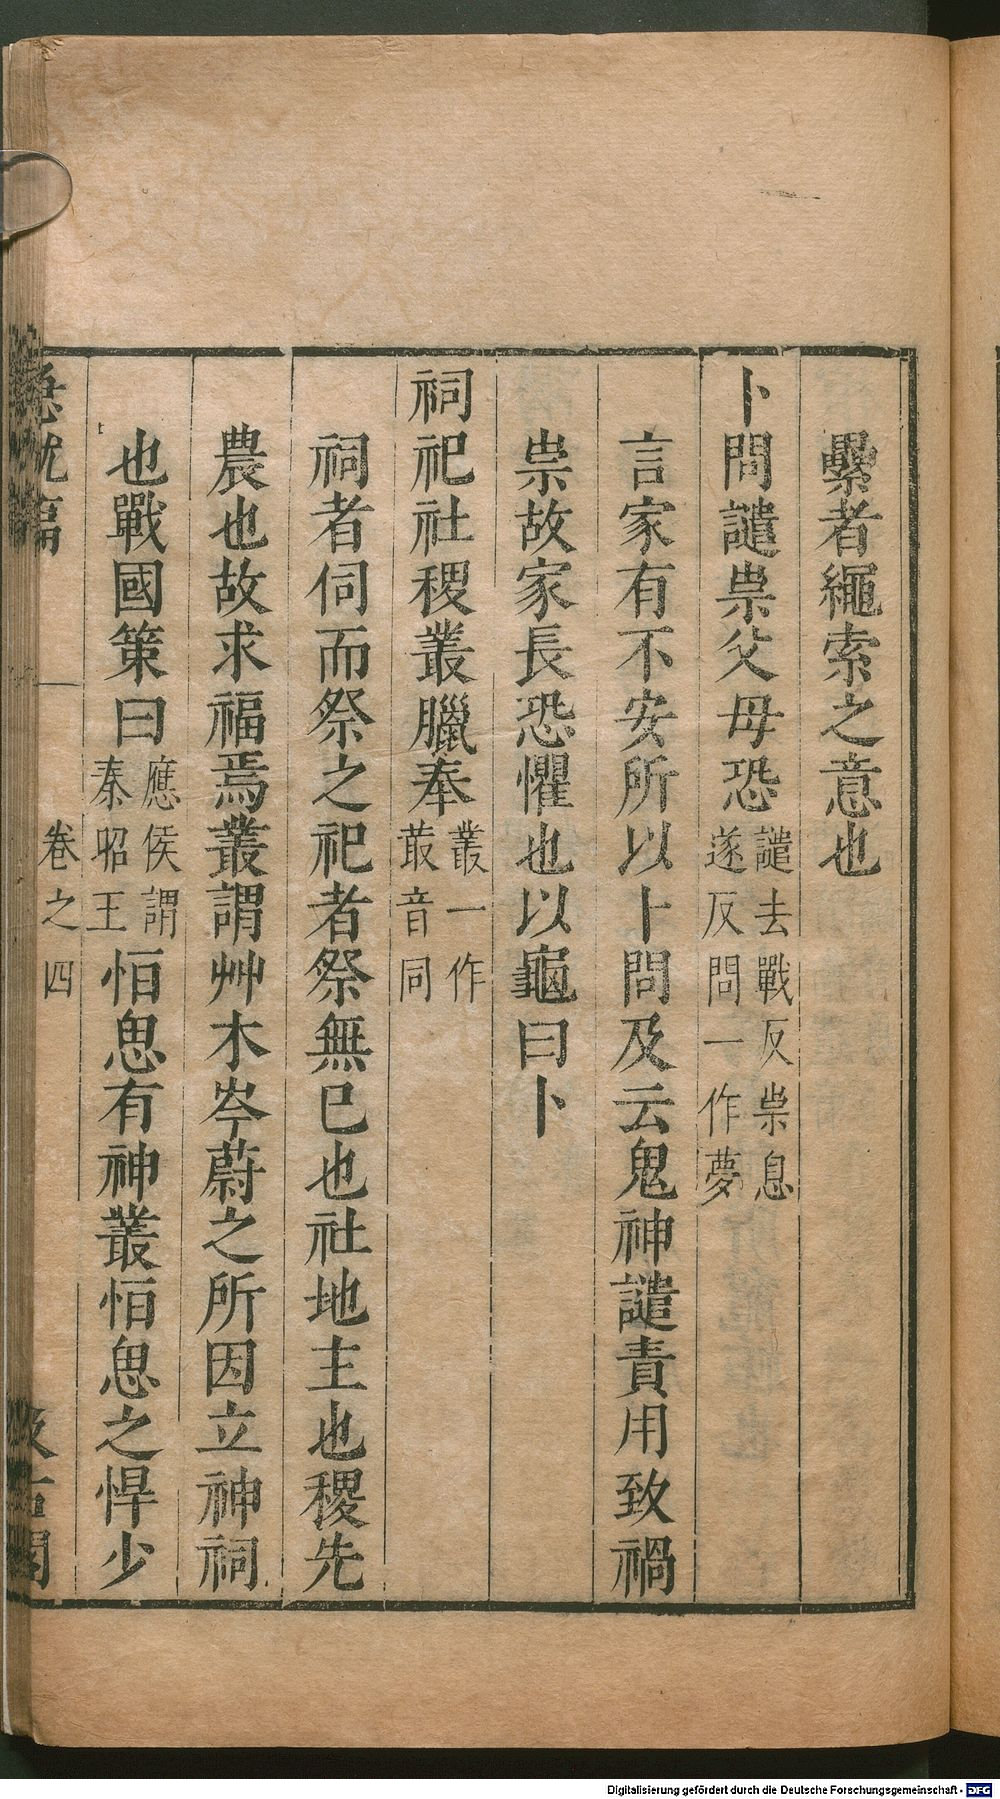 纍者繩索之意也
卜問譴祟父母恐譴去戰反祟息遂反問一作夢
言家有不安所以卜問及云鬼神譴責用致禍
祟故家長恐懼也以龜曰卜
祠祀社稷叢臘奉叢一作菆音同
祠者伺而祭之祀者祭無已也社地主也稷先
農也故求福焉叢謂艸木岑蔚之所因立神祠
也戰國策曰應侯謂秦昭王恒思有神叢恒思之悍少
急就篇 卷之四 汲古閣
Digitalisierung gefördert durch die Deutsche Forschungsgemeinschaft - DFG